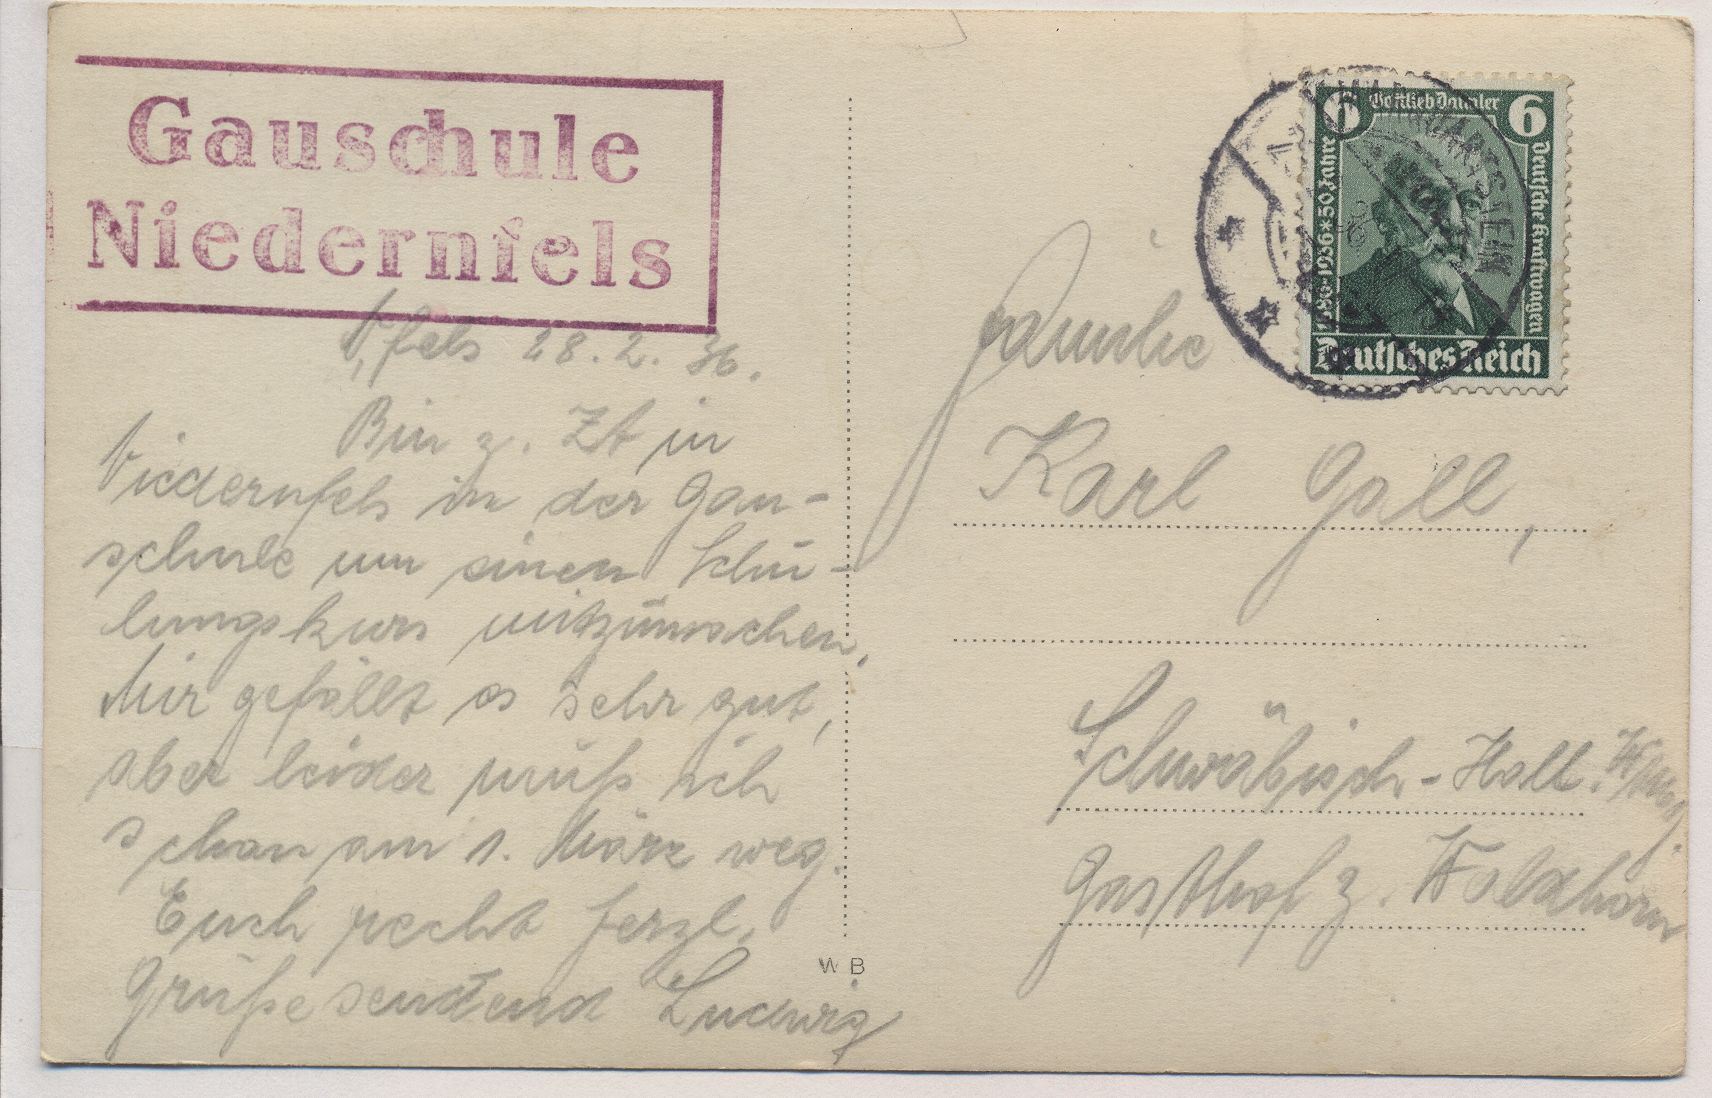 Gauschule
Niedernfels
N,fels 28.2.36.
Bin z. Zt in
Niedernfels in der Gau-
schule um einen Schu-
lungskurs mitzumachen,
Mir gefällt es sehr gut,
aber leider muß ich
schon am 1. März weg.
Euch recht herzl.
Grüße sendend Ludwig
W B
6 Gottlieb Daimler 6
1886-1936 50 Jahre
Deutsche Kraftwagen
Deutsches Reich
MARQUARTSTEIN
Familie
Karl Gall,
Schwäbisch-Hall.
Gasthof z. Waldhorn